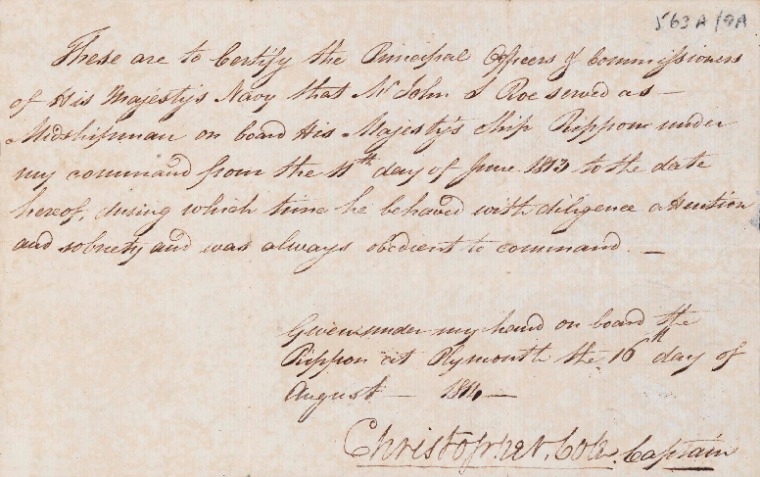 563A/9A
These are to Certify the Principal Officers & Commissioners
of His Majesty's Navy that Mr John S Roe served as —
Midshipman on board His Majesty's Ship Rippon under
my command from the 11th day of June 1813 to the date
hereof, during which time he behaved with diligence attention
and sobriety and was always obedient to command. —
Given under my hand on board the
Rippon at Plymouth the 16th day of
August — 1814 —
Christopher Cole, Captain